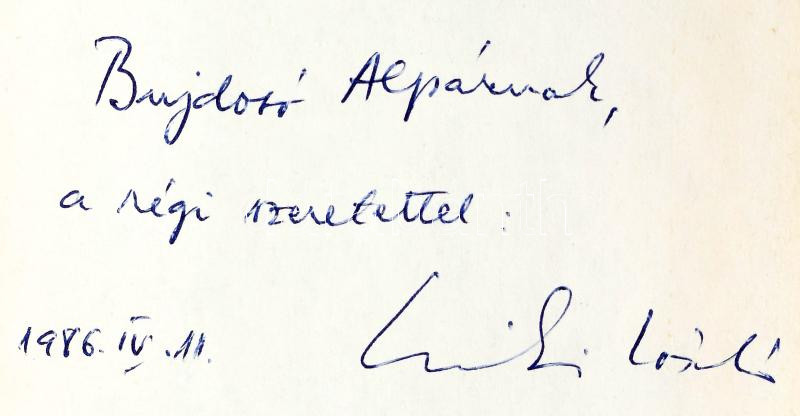 Bujdosó Alpárnak,
a régi szeretettel:
1986. IV. 11.
László